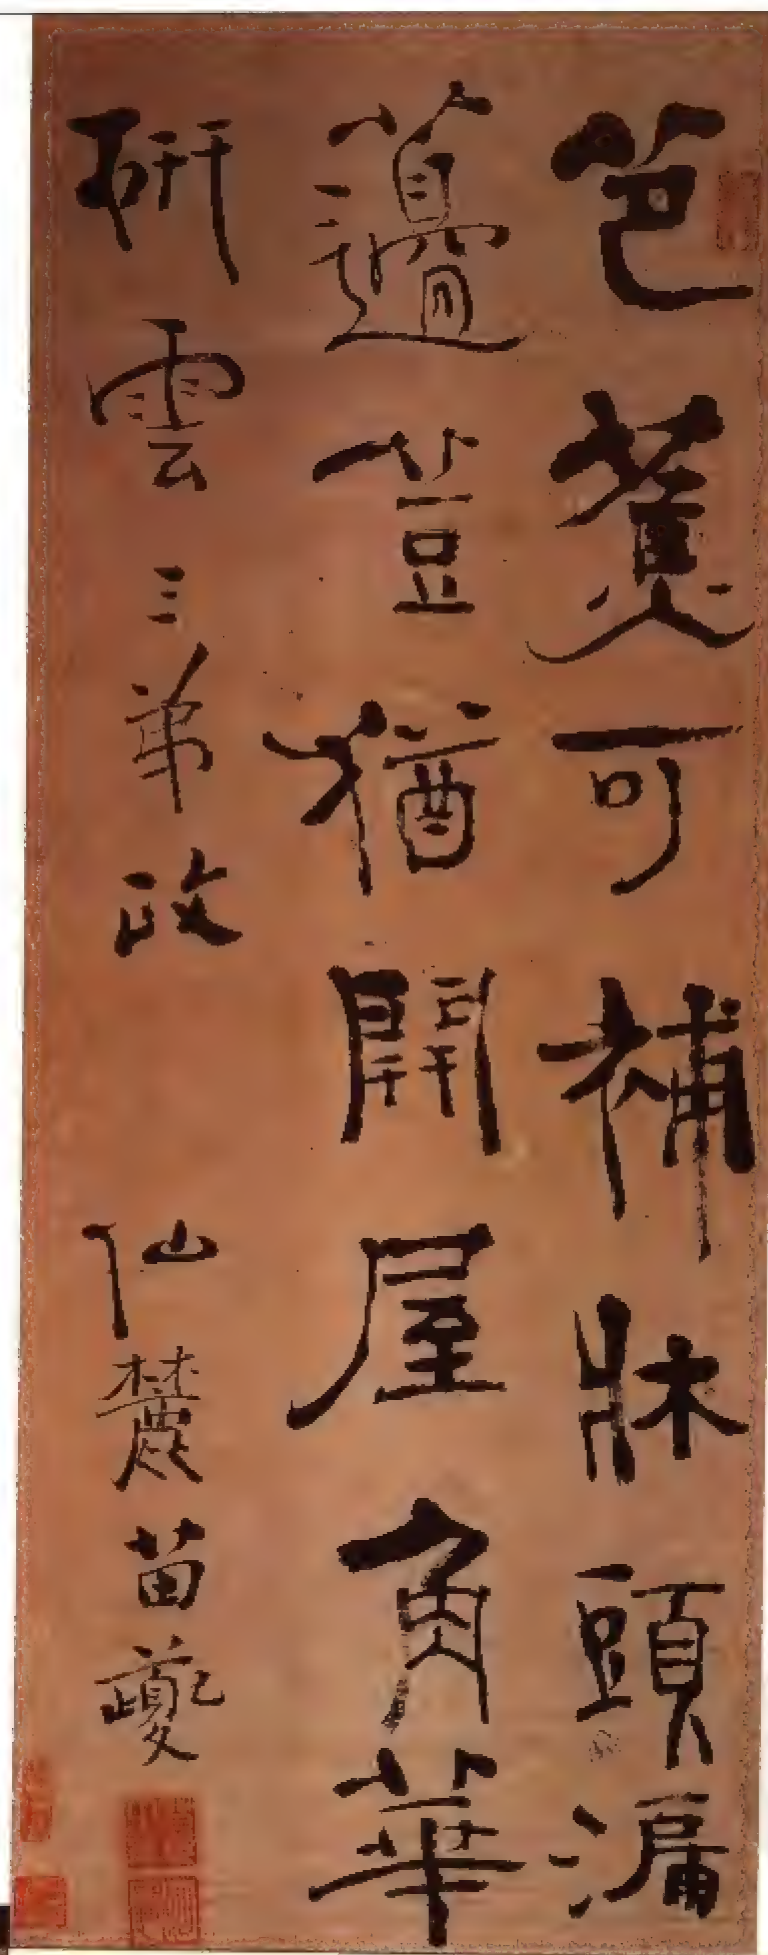 芭蕉可補牀頭漏
籩荳猶開屋角華
研雲三弟政
仙麓苗夔